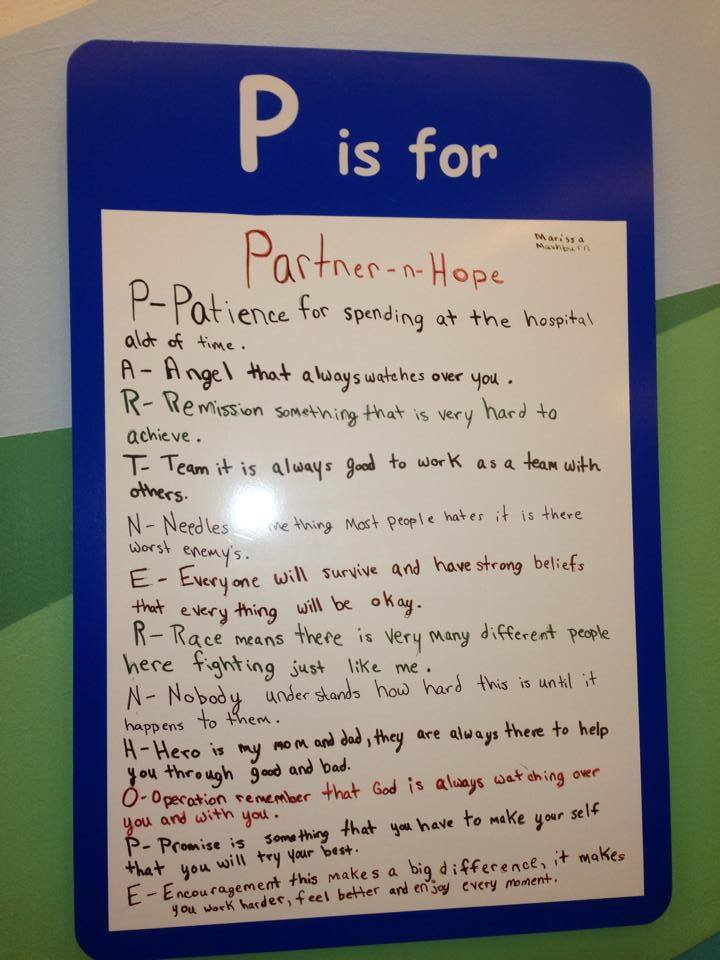 P is for
Partner-n-Hope
Marissa
Mashburn
P-Patience for spending at the hospital
alot of time.
A- Angel that always watches over you.
R- Remission something that is very hard to
achieve.
T- Team it is always good to work as a team with
others.
N- Needles mething most people hates it is there
worst enemy's.
E- Everyone will survive and have strong beliefs
that every thing will be okay.
R- Race means there is very many different people
here fighting just like me.
N- Nobody understands how hard this is until it
happens to them.
H-Hero is my mom and dad, they are always there to help
you through good and bad.
O-Operation remember that God is always watching over
you and with you.
P- Promise is something that you have to make your self
that you will try your best.
E-Encouragement this makes a big difference, it makes
you work harder, feel better and enjoy every moment.